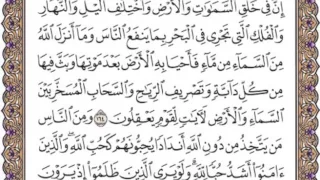 إِنَّ فِي خَلْقِ السَّمَٰوَٰتِ وَالْأَرْضِ وَاخْتِلَٰفِ الَّيْلِ وَالنَّهَارِ
وَالْفُلْكِ الَّتِي تَجْرِي فِي الْبَحْرِ بِمَا يَنفَعُ النَّاسَ وَمَا أَنزَلَ اللَّهُ
مِنَ السَّمَاءِ مِن مَّاءٍ فَأَحْيَا بِهِ الْأَرْضَ بَعْدَ مَوْتِهَا وَبَثَّ فِيهَا
مِن كُلِّ دَابَّةٍ وَتَصْرِيفِ الرِّيَٰحِ وَالسَّحَابِ الْمُسَخَّرِ بَيْنَ
السَّمَاءِ وَالْأَرْضِ لَءَايَٰتٍ لِّقَوْمٍ يَعْقِلُونَ ١٦٤ وَمِنَ النَّاسِ
مَن يَتَّخِذُ مِن دُونِ اللَّهِ أَندَادًا يُحِبُّونَهُمْ كَحُبِّ اللَّهِ وَالَّذِينَ
ءَامَنُوا أَشَدُّ حُبًّا لِّلَّهِ وَلَوْ يَرَى الَّذِينَ ظَلَمُوا إِذْ يَرَوْنَ